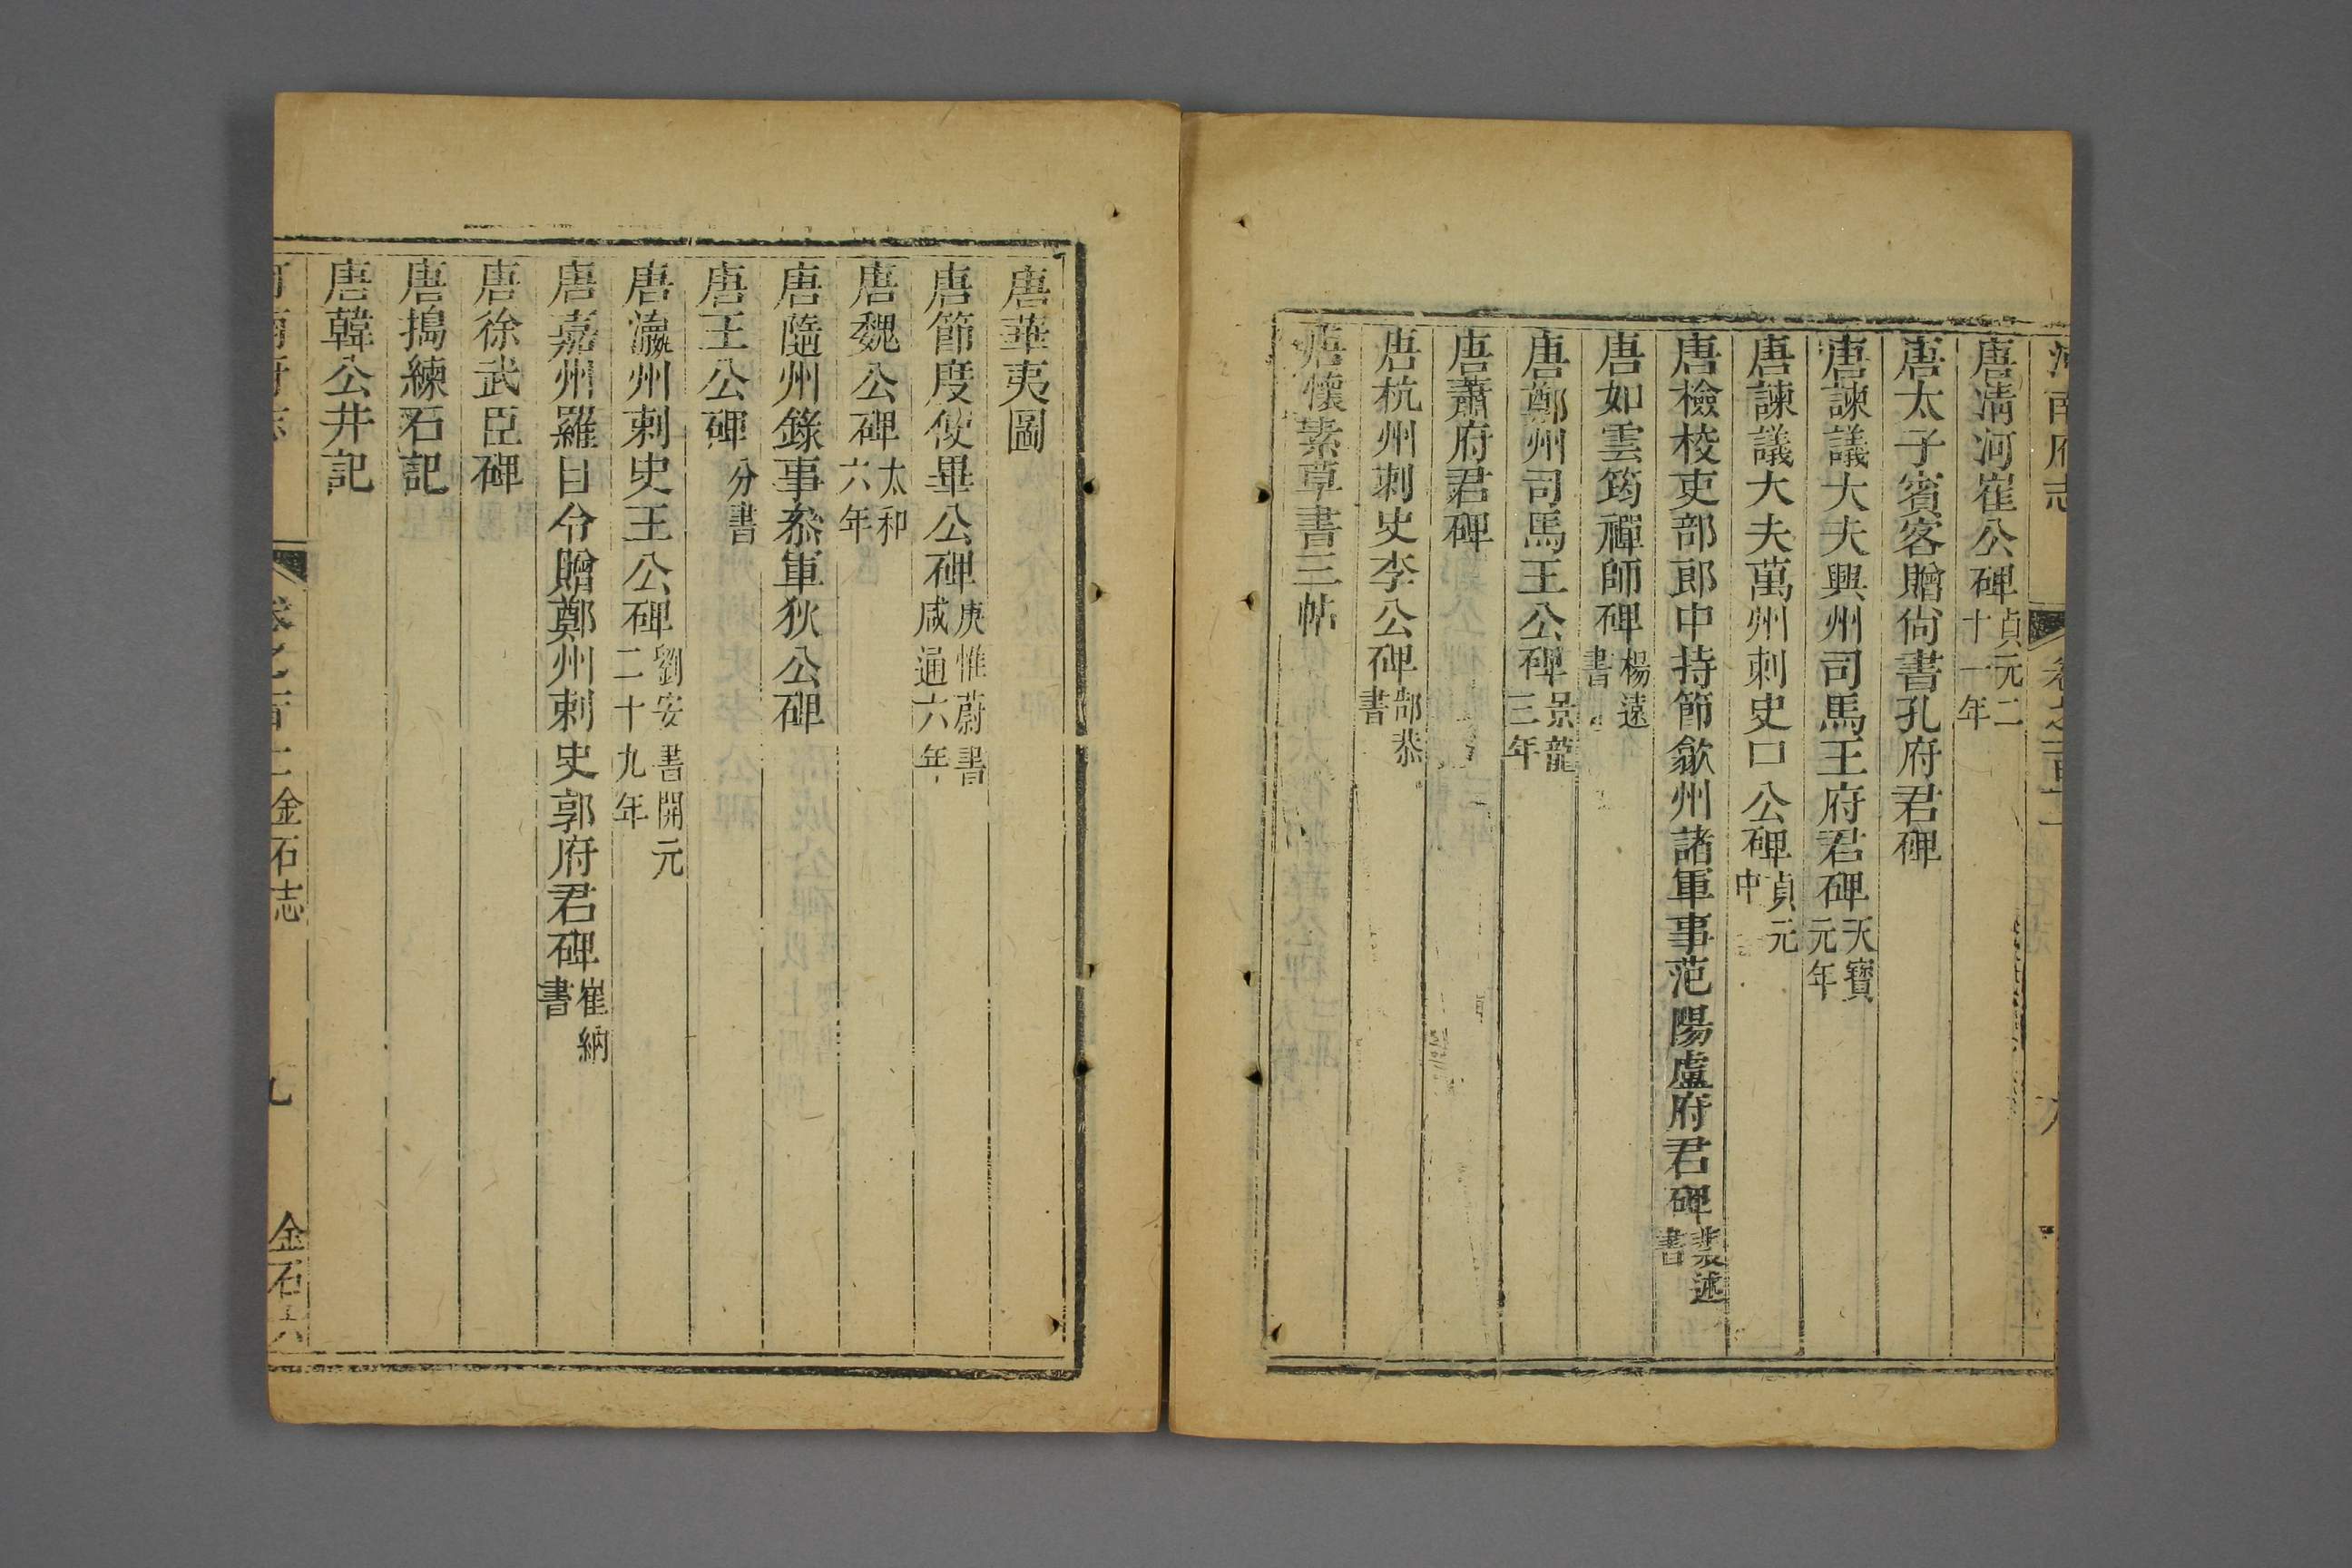 河南府志 卷之百十
唐淸河崔公碑 貞元二十一年
唐太子賓客贈尙書孔府君碑
唐諫議大夫興州司馬王府君碑 天寶元年
唐諫議大夫萬州刺史口公碑 貞元中
唐檢校吏部郎中持節歙州諸軍事范陽盧府君碑 裴述書
唐如雲筠禪師碑 楊遠書
唐鄭州司馬王公碑 景龍三年
唐蕭府君碑
唐杭州刺史李公碑 部恭書
唐懷素草書三帖
唐華夷圖
唐節度使畢公碑 庚惟蔚書咸通六年
唐魏公碑 太和六年
唐隨州錄事叅軍狄公碑
唐王公碑 分書
唐瀛州刺史王公碑 劉安書開元二十九年
唐嘉州羅目令贈鄭州刺史郭府君碑 崔納書
唐徐武臣碑
唐搗練石記
唐韓公井記
河南府志 卷之百十 金石志 九 金石六